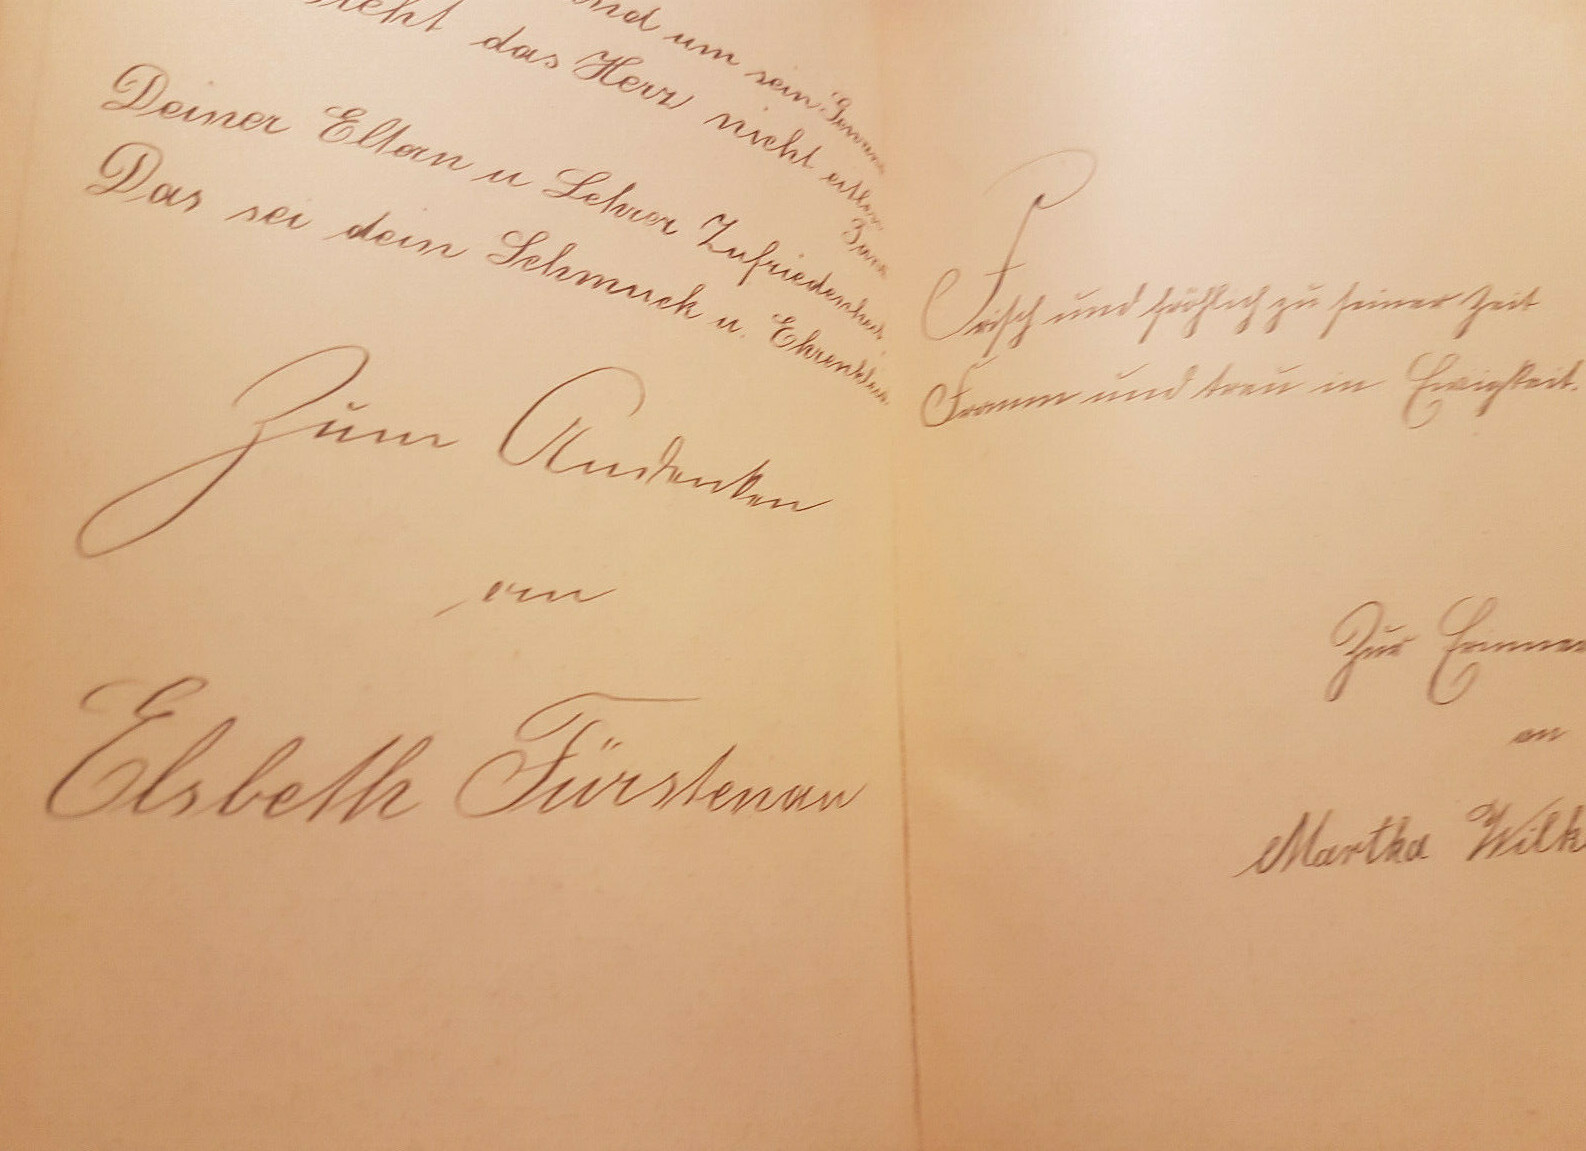 und um sein
das Herz nicht
Deiner Eltern u Lehrer Zufriedenheit,
Das sei dein Schmuck u. Ehrenkleid.
Zum Andenken
an
Elsbeth Fürstenau
Frisch und fröhlich zu seiner Zeit
Fromm und treu in Ewigkeit.
Zur
an
Martha